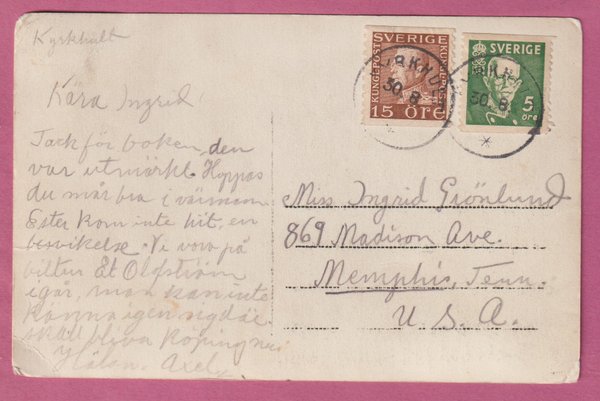 Kyrkhult
Kära Ingrid!
Tack för boken, den
var utmärkt. Hoppas
du mår bra i värman
Ester kom inte hit, en
besvikelse. Vi voro på
bilten Et Olofström
igår, man kan inte
känna igen
skall bliva köping nu
Hälsn. Axel
SVERIGE
KUNGL·POST
15 ÖRE
KYRKHULT
30. 8.
SVERIGE
5
öre
30. 8.
Miss Ingrid Grönlund
869 Madison Ave.
Memphis, Tenn.
U. S. A.